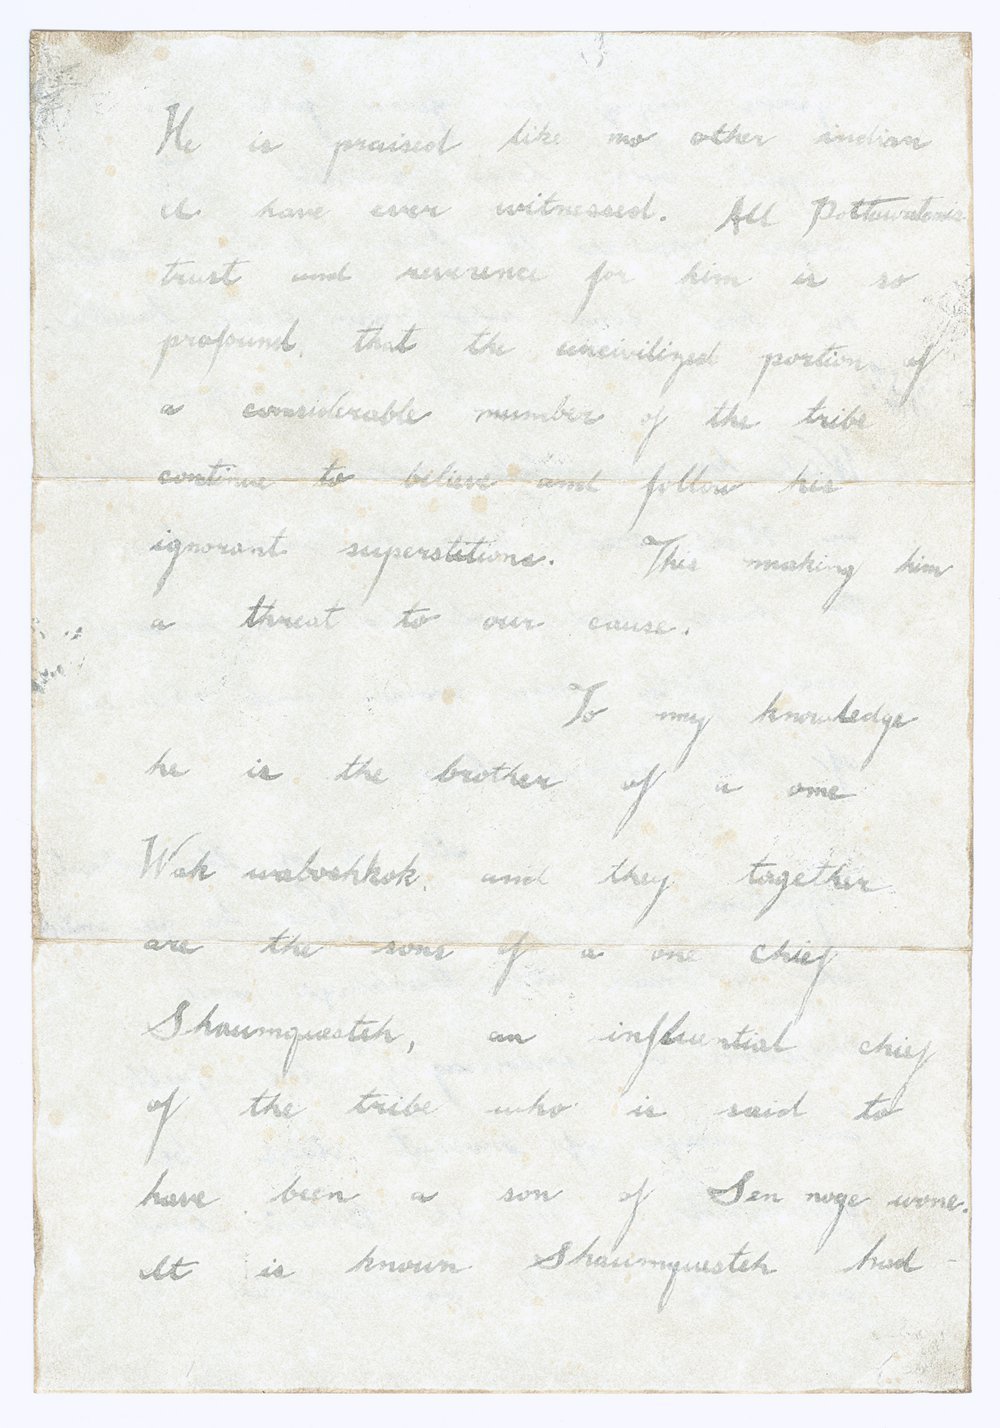 He is praised like no other indian
I have ever witnessed. All Pottawatomis
trust and reverence for him is so
profound, that the uncivilized portion of
a considerable number of the tribe
continue to believe and follow his
ignorant superstitions. This making him
a threat to our cause.
To my knowledge
he is the brother of a one
Wak waboshkok, and they together
are the sons of a one chief
Shaumquesteh, an influential chief
of the tribe who is said to
have been a son of Sen noge wone.
It is known Shaumquesteh had